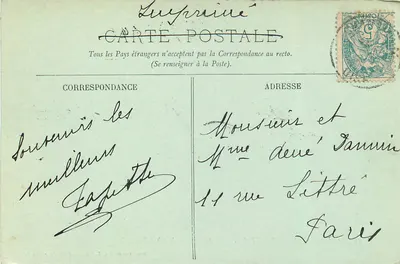 Imprimé
CARTE POSTALE
Tous les Pays étrangers n'acceptent pas la Correspondance au recto.
(Se renseigner à la Poste).
CORRESPONDANCE
ADRESSE
Souvenirs les
meilleurs
Monsieur et
Mme
11 rue Littré
Paris